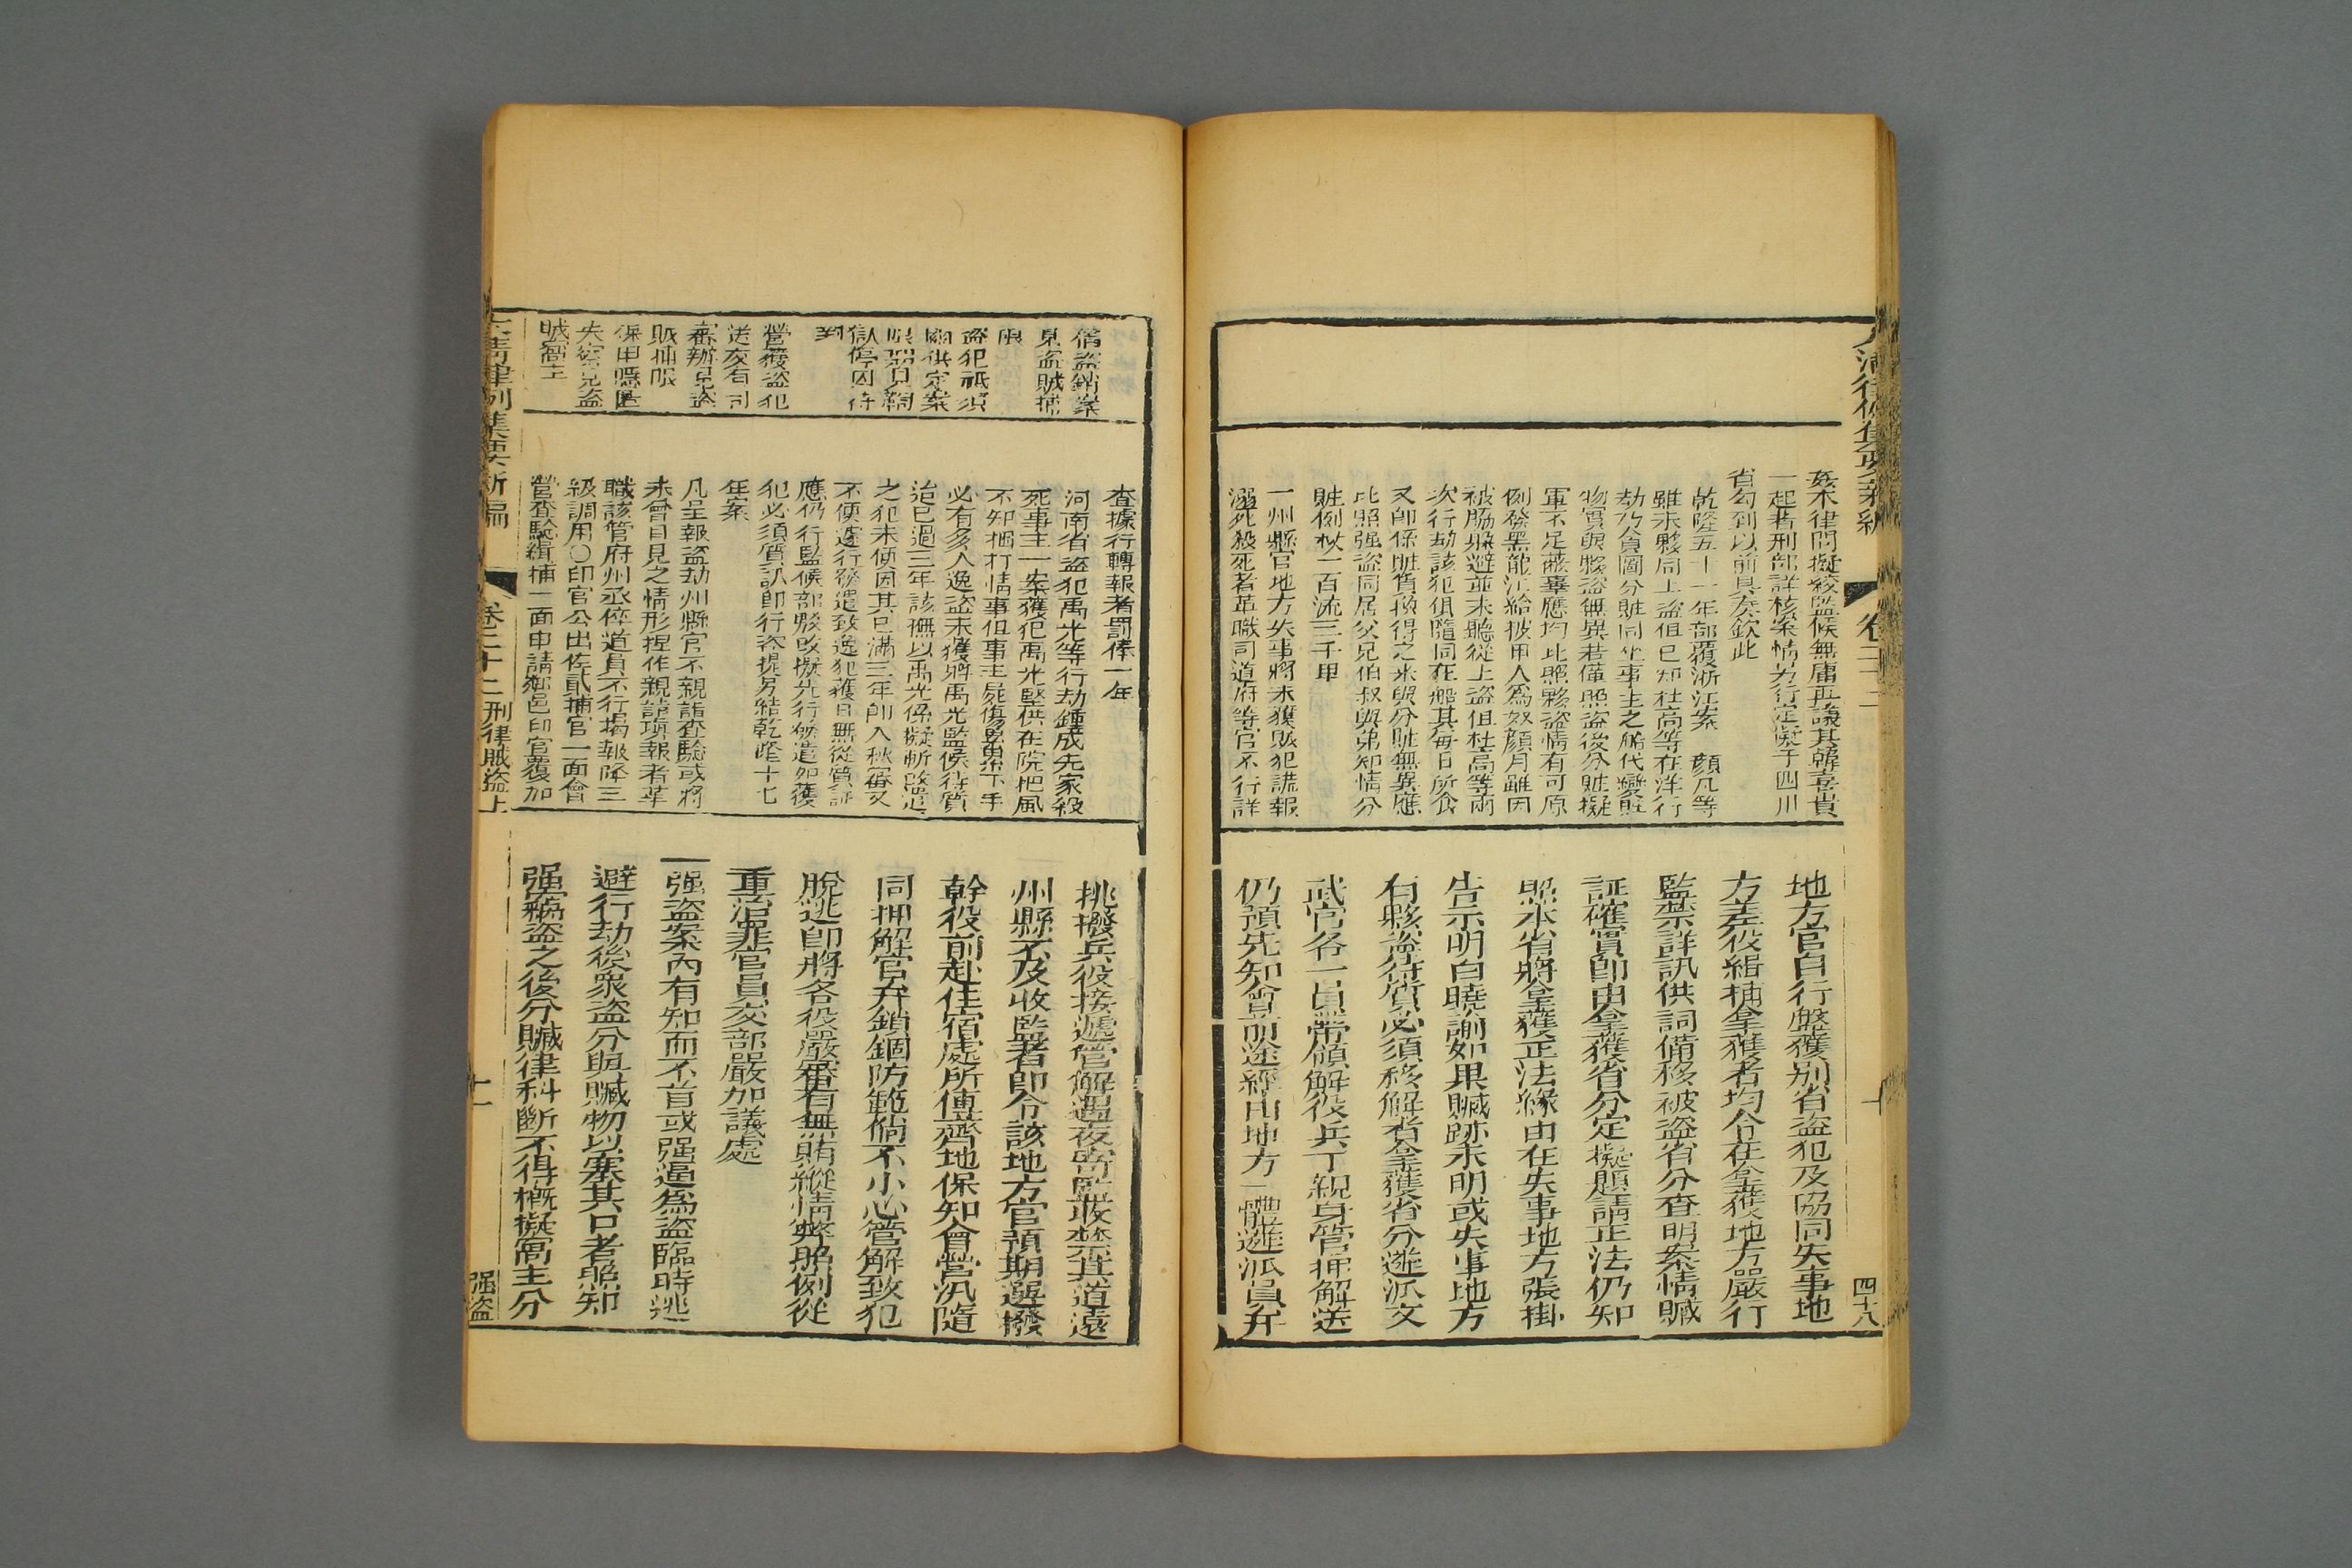 大清律例集要新編
卷二十二
四十八
姦本律問擬絞監候無庸再議其韓喜貴
一起著刑部詳核案情另行定擬于四川
省勾到以前具奏欽此
乾隆五十一年部覆浙江案 顏凡等
雖未夥同上盜但已知杜高等在洋行
劫乃貪圖分賍同坐事主之船代變賍
物實與夥盜無異若僅照盜後分賍擬
軍不足蔽辜應均比照夥盜情有可原
例發黑龍江給披甲人為奴顏月雖因
被脇躱避並未聽從上盜但杜高等兩
次行劫該犯俱隨同在船其每日所食
又即係賍貨換得之米與分賍無異應
比照强盜同居父兄伯叔與弟知情分
賍例杖一百流三千里
一州縣官地方失事將未獲賊犯謊報
溺死殺死者革職司道府等官不行詳
地方官自行盤獲別省盜犯及協同失事地
方差役緝捕拿獲者均令在拿獲地方嚴行
監禁詳訊供詞備移被盜省分查明案情贓
証確實即由拿獲省分定擬題請正法仍知
照本省將拿獲正法緣由在失事地方張掛
告示明白曉諭如果贓跡未明或失事地方
有夥盜待質必須移解者拿獲省分遴派文
武官各一員帶領解役兵丁親身管押解送
仍預先知會前途經由地方一體遴派員弁
僞盜銷案
見盜賊捕
限
盜犯祇須
兩供定案
獄停囚待
對
營獲盜犯
送交有司
審辦見盜
賊捕限
保甲隱匿
失察見盜
賊窩主
查據行轉報者罰俸一年
河南省盜犯禹光等行劫鍾成先家殺
死事主一案獲犯禹光堅供在院把風
不知捆打情事但事主屍傷纍纍下手
必有多人逸盜未獲將禹光監候待質
迨已過三年該撫以禹光係擬斬改遣
之犯未便因其已滿三年即入秋審又
不便遽行發遣致逸犯獲日無從質証
應仍行監候部駁改擬先行發遣如獲
犯必須質訊即行咨提另結乾隆十七
年案
凡呈報盜劫州縣官不親詣查驗或將
未曾目見之情形捏作親詣填報者革
職該管府州丞倅道員不行揭報降三
級調用○印官公出佐貳捕官一面會
營查驗緝捕一面申請鄰邑印官覆加
挑撥兵役接遞管解遇夜寄監收禁其道遠
州縣不及收監者即令該地方官預期選撥
幹役前赴住宿處所傳齊地保知會營汛隨
同押解官弁鎖錮防範倘不小心管解致犯
脫逃即將各役嚴審有無賄縱情弊照例從
重治罪官員交部嚴加議處
一强盜案內有知而不首或强逼為盜臨時逃
避行劫後衆盜分與贓物以塞其口者照知
强竊盜之後分贓律科斷不得槪擬窩主分
大清律例集要新編
卷二十二刑律賊盜上
十一
强盜